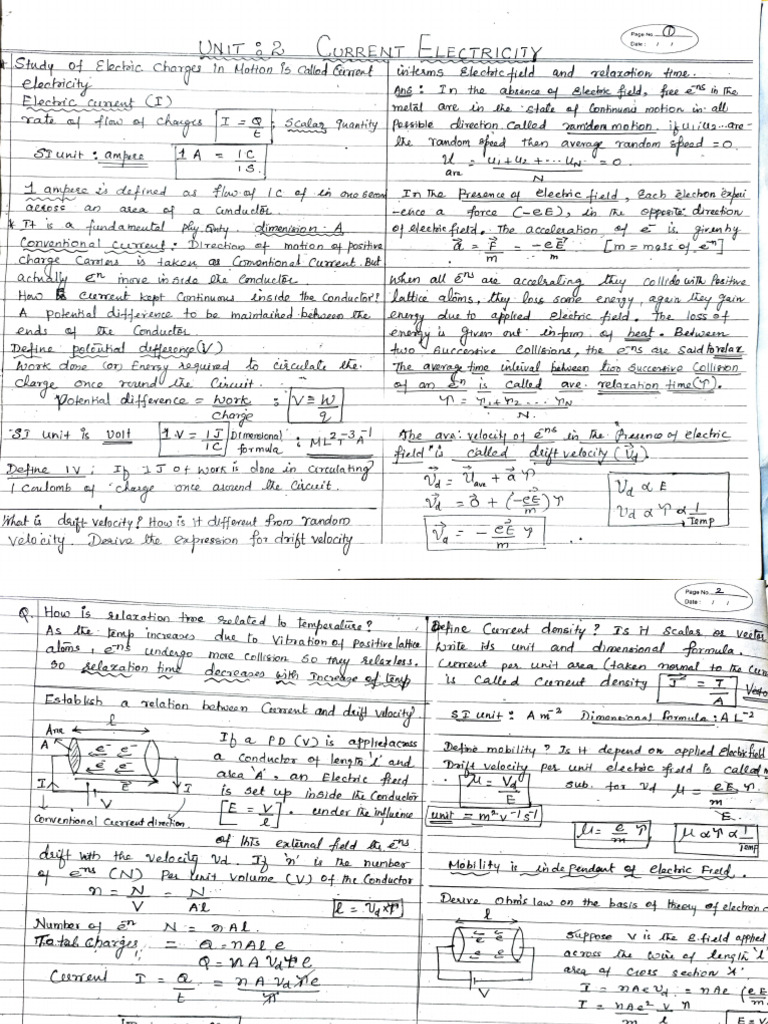 Page No. 1
Date: / /
UNIT: 2 CURRENT ELECTRICITY
* Study of Electric Charges in Motion is Called Current
electricity
Electric current (I)
rate of flow of charges I = Q/t ; Scalar Quantity
SI unit : ampere 1 A = 1C/1S.
1 ampere is defined as flow of 1C of in one second
across an area of a conductor.
* It is a fundamental phy. Qnty. dimension A
Conventional Current: Direction of motion of positive
charge Carriers is taken as Conventional Current. But
actually en move inside the Conductor.
How is current kept Continuous inside the Conductor?
A potential difference to be maintained between the
ends of the Conductor.
Define potential difference (V)
Work done (or) Energy required to circulate the
charge once round the Circuit.
Potential difference = Work/charge ; V = W/q
SI unit is volt 1V = 1J/1C Dimensional formula : ML²T⁻³A⁻¹
Define 1V: If 1J of work is done in Circulating
1 Coulomb of charge once around the Circuit.
What is drift velocity? How is it different from random
velocity. Derive the expression for drift velocity
interms Electric field and relaxation time.
Ans: In the absence of Electric field, free e⁻ns in the
metal are in the state of Continuous motion in all
possible direction Called random motion. if u1 u2... are
the random speed then average random speed = 0.
U ave = u1 + u2 + ... uN / N = 0.
In the Presence of electric field, Each electron experi
-ence a force (-eE), in the opposite direction
of electric field. The acceleration of e⁻ is given by
a = F/m = -eE/m [m = mass of e⁻n]
When all e⁻ns are accelrating they collide with Positive
lattice atoms, they loss some energy, again they gain
energy due to applied Electric field. The loss of
energy is given out inform of heat. Between
two Successive Collisions, the e⁻ns are Said to relax
The average time interval between two Successive Collision
of an e⁻n is called ave. relaxation time (τ).
τ = τ1 + τ2 ... τN / N.
The ave: velocity of e⁻ns in the Presence of electric
field is called drift velocity (Vd).
Vd = Uave + a τ
Vd = 0 + (-eE/m) τ
Vd = - eE/m τ
Vd ∝ E
Vd ∝ τ ∝ 1/Temp
Page No. 2
Date: / /
Q. How is relaxation time related to temperature?
As the temp increases due to Vibration of Positive lattice
atoms, e⁻ns undergo more Collision so they relax less.
so relaxation time decreases with Increase of temp
Establish a relation between Current and drift velocity.
Ans
l
A
e⁻ e⁻
e⁻ e⁻
E
I
I
V
Conventional Current direction
If a PD (V) is applied across
a conductor of length 'l' and
area 'A', an Electric field
is set up inside the Conductor
[E = V/l] . under the influence
of this external field the e⁻ns
drift with the velocity Vd. If 'n' is the number
of e⁻ns (N) Per unit volume (V) of the Conductor
n = N/V = N/Al l = Vd × τ
Number of e⁻n N = nAl.
Total Charges = Q = nAl e
Q = nA Vd τ e
Current I = Q/t = nA Vd τ e / τ
Define Current density? Is it Scalar or Vector
Write its unit and dimensional formula.
Current per unit area (taken normal to the
is called Current density J = I/A
SI unit : A m⁻² Dimensional formula : A L⁻²
Define mobility? Is it depend on applied Electric field
Drift velocity per unit electric field is called
μ = Vd/E sub. for vd μ = eE τ / m E
unit = m²v⁻¹s⁻¹
μ = e/m τ
μ ∝ τ ∝ 1/Temp
Mobility is independent of electric Field.
Derive ohm's law on the basis of theory of electron
l
e⁻ e⁻
e⁻ e⁻
V
Suppose V is the E. field applied
across the wire of length 'l'
area of cross section 'A'
I = nAeVd = nAe (eE/m
I = nAe²/m V/l τ